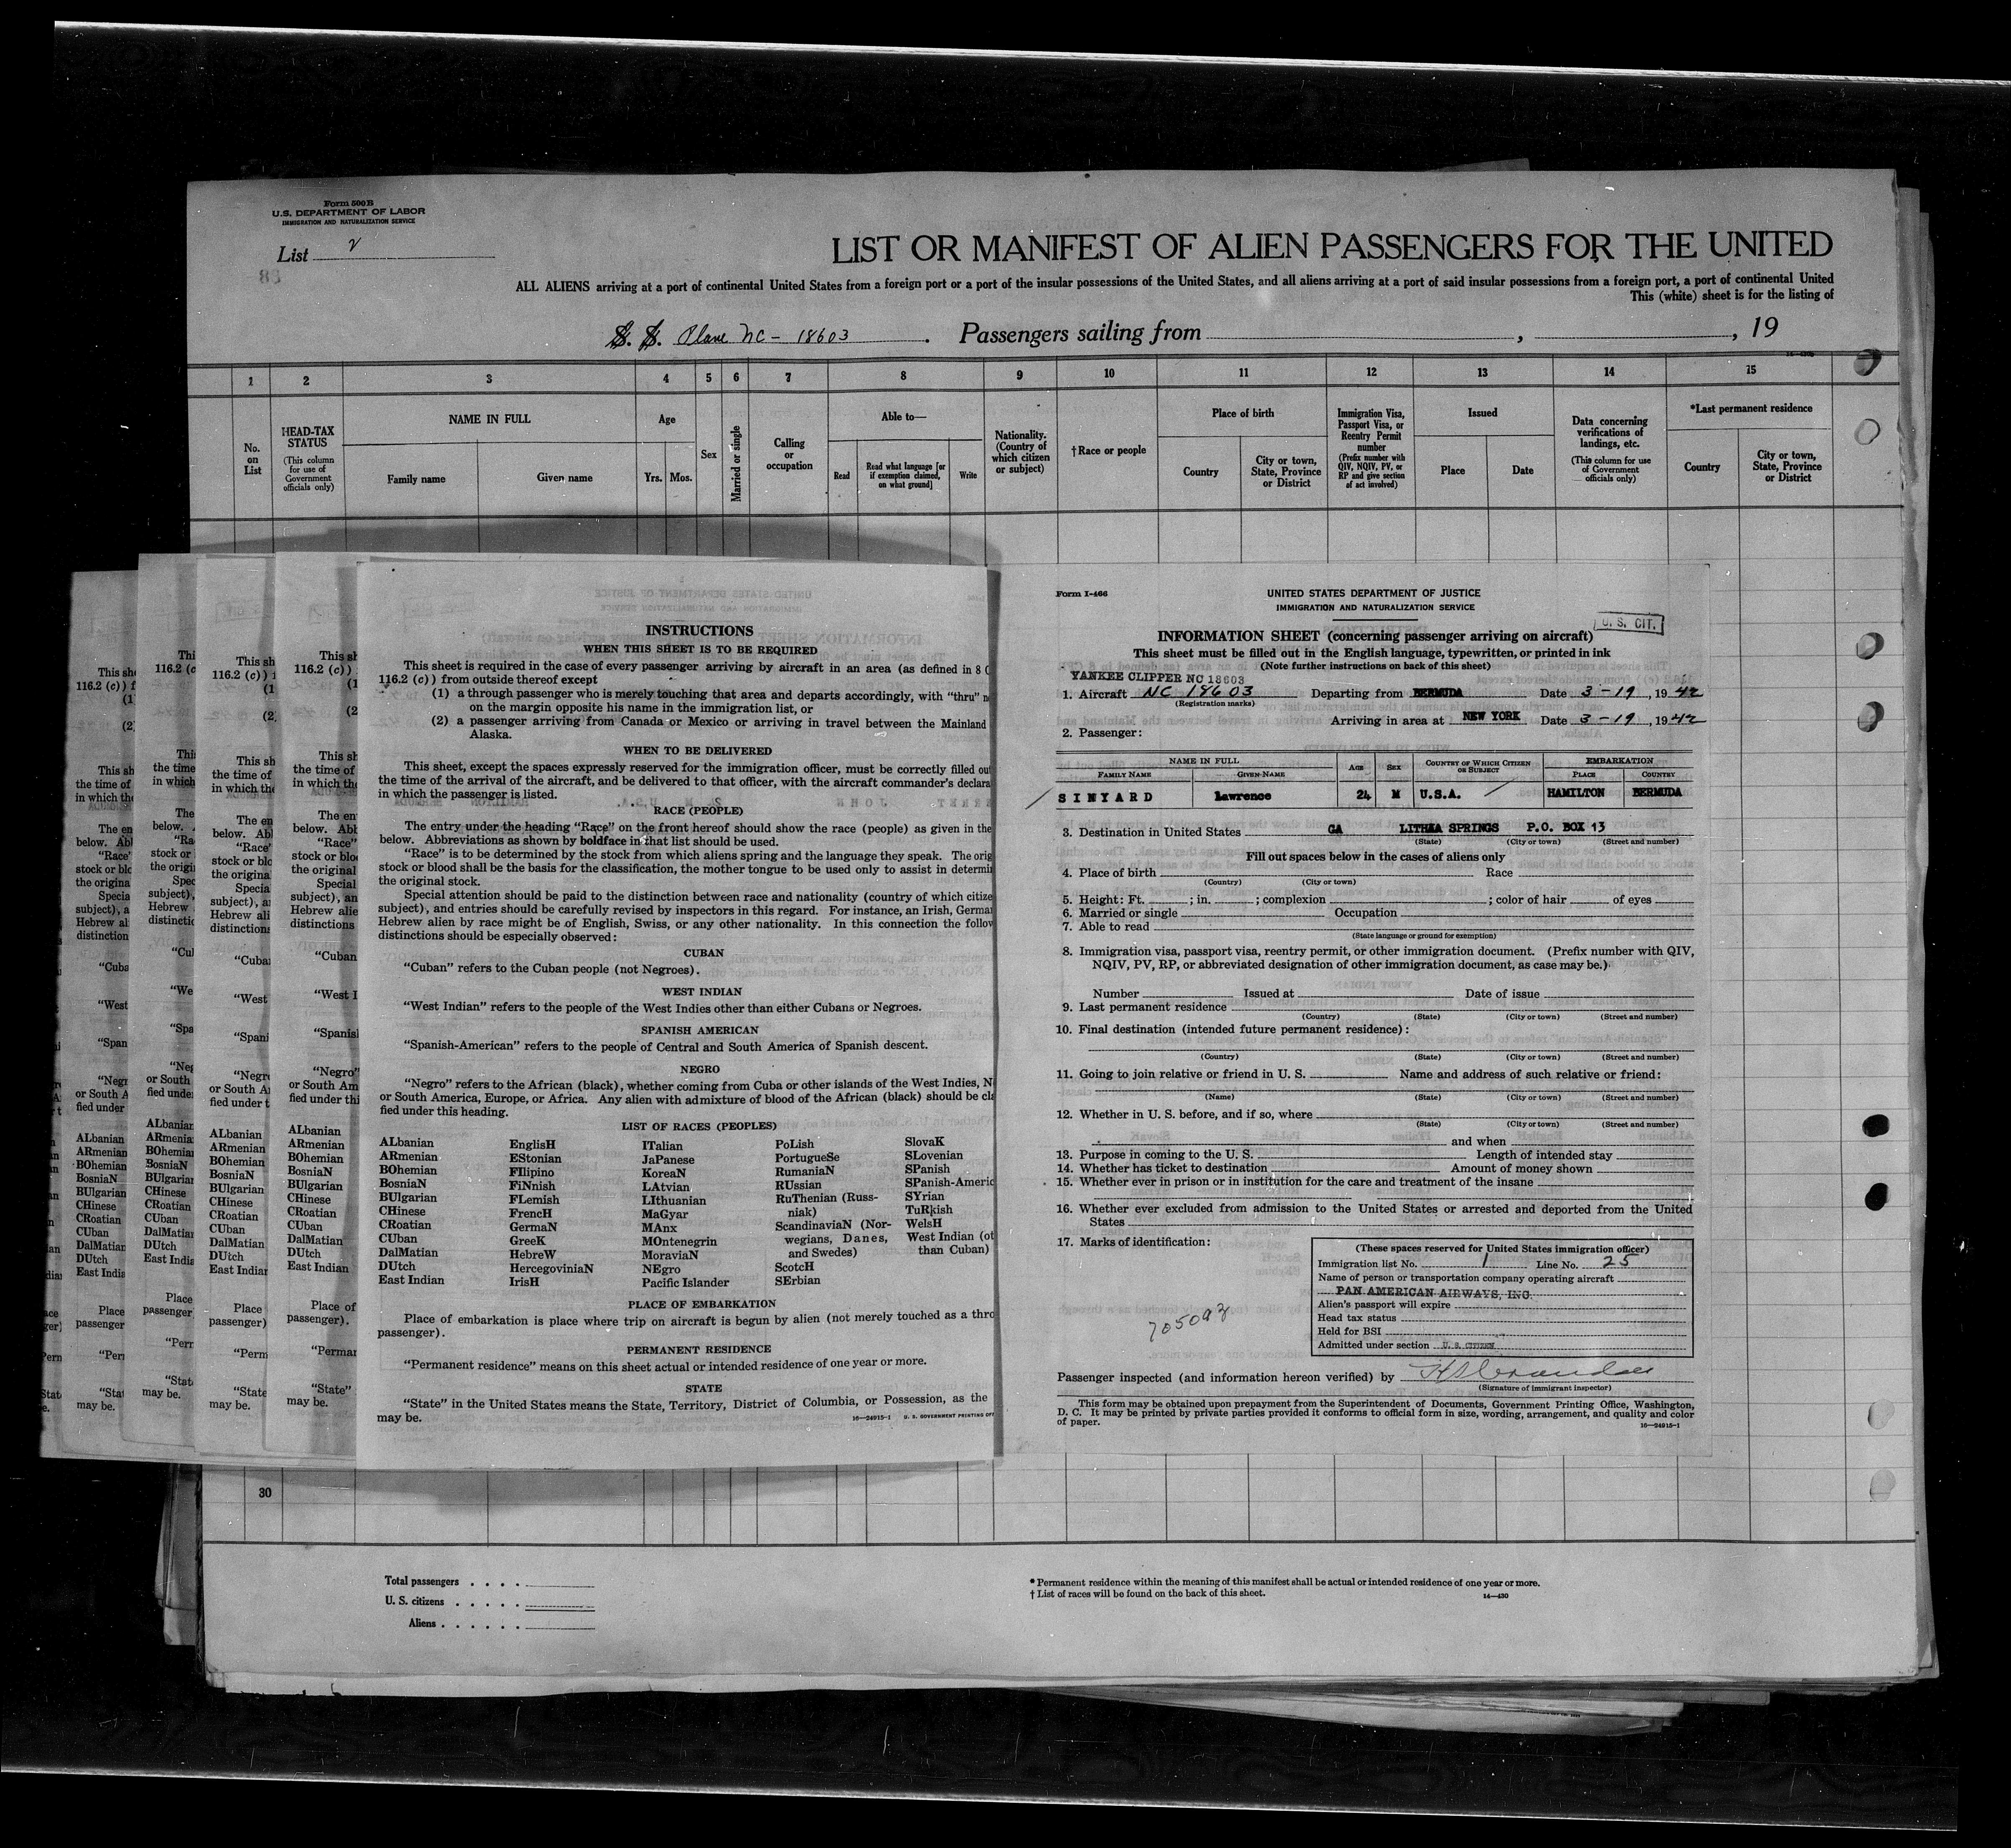 Form 500B
U.S. DEPARTMENT OF LABOR
IMMIGRATION AND NATURALIZATION SERVICE
List 2
88
LIST OR MANIFEST OF ALIEN PASSENGERS FOR THE UNITED
ALL ALIENS arriving at a port of continental United States from a foreign port or a port of the insular possessions of the United States, and all aliens arriving at a port of said insular possessions from a foreign port, a port of continental United
This (white) sheet is for the listing of
S. S. Plane NC - 18603 . Passengers sailing from , , 19
1 2 3 4 5 6 7 8 9 10 11 12 13 14 15
No. on List
HEAD-TAX STATUS
(This column for use of Government officials only)
NAME IN FULL
Family name Given name
Age
Yrs. Mos.
Sex
Married or single
Calling or occupation
Able to—
Read
Read what language [or if exemption claimed, on what ground]
Write
Nationality. (Country of which citizen or subject)
†Race or people
Place of birth
Country
City or town, State, Province or District
Immigration Visa, Passport Visa, or Reentry Permit number
(Prefix number with QIV, NQIV, PV, or RP and give section of act involved)
Issued
Place Date
Data concerning verifications of landings, etc.
(This column for use of Government officials only)
*Last permanent residence
Country
City or town, State, Province or District
INSTRUCTIONS
WHEN THIS SHEET IS TO BE REQUIRED
This sheet is required in the case of every passenger arriving by aircraft in an area (as defined in 8
116.2 (c)) from outside thereof except
(1) a through passenger who is merely touching that area and departs accordingly, with "thru"
on the margin opposite his name in the immigration list, or
(2) a passenger arriving from Canada or Mexico or arriving in travel between the Mainland
Alaska.
WHEN TO BE DELIVERED
This sheet, except the spaces expressly reserved for the immigration officer, must be correctly filled out
the time of the arrival of the aircraft, and be delivered to that officer, with the aircraft commander's declara
in which the passenger is listed.
RACE (PEOPLE)
The entry under the heading "Race" on the front hereof should show the race (people) as given in the
below. Abbreviations as shown by boldface in that list should be used.
"Race" is to be determined by the stock from which aliens spring and the language they speak. The orig
stock or blood shall be the basis for the classification, the mother tongue to be used only to assist in determin
the original stock.
Special attention should be paid to the distinction between race and nationality (country of which citize
subject), and entries should be carefully revised by inspectors in this regard. For instance, an Irish, Germa
Hebrew alien by race might be of English, Swiss, or any other nationality. In this connection the follow
distinctions should be especially observed:
CUBAN
"Cuban" refers to the Cuban people (not Negroes).
WEST INDIAN
"West Indian" refers to the people of the West Indies other than either Cubans or Negroes.
SPANISH AMERICAN
"Spanish-American" refers to the people of Central and South America of Spanish descent.
NEGRO
"Negro" refers to the African (black), whether coming from Cuba or other islands of the West Indies, N
or South America, Europe, or Africa. Any alien with admixture of blood of the African (black) should be cla
fied under this heading.
LIST OF RACES (PEOPLES)
ALbanian
ARmenian
BOhemian
BosniaN
BUlgarian
CHinese
CRoatian
CUban
DalMatian
DUtch
East Indian
EnglisH
EStonian
FIlipino
FiNnish
FLemish
FrencH
GermaN
GreeK
HebreW
HercegoviniaN
IrisH
ITalian
JaPanese
KoreaN
LAtvian
LIthuanian
MaGyar
MAnx
MOntenegrin
MoraviaN
NEgro
Pacific Islander
PoLish
PortugueSe
RumaniaN
RUssian
RuThenian (Russ-
niak)
ScandinaviaN (Nor-
wegians, Danes,
and Swedes)
ScotcH
SErbian
SlovaK
SLovenian
SPanish
SPanish-Americ
SYrian
TuRkish
WelsH
West Indian (ot
than Cuban)
PLACE OF EMBARKATION
Place of embarkation is place where trip on aircraft is begun by alien (not merely touched as a thro
passenger).
PERMANENT RESIDENCE
"Permanent residence" means on this sheet actual or intended residence of one year or more.
STATE
"State" in the United States means the State, Territory, District of Columbia, or Possession, as the
may be.
16—24915-1 U. S. GOVERNMENT PRINTING OFF
Form I-466
UNITED STATES DEPARTMENT OF JUSTICE
IMMIGRATION AND NATURALIZATION SERVICE
U. S. CIT.
INFORMATION SHEET (concerning passenger arriving on aircraft)
This sheet must be filled out in the English language, typewritten, or printed in ink
(Note further instructions on back of this sheet)
YANKEE CLIPPER NC 18603
1. Aircraft NC 18603 Departing from BERMUDA Date 3-19, 1942
(Registration marks)
Arriving in area at NEW YORK Date 3-19, 1942
2. Passenger:
NAME IN FULL
FAMILY NAME GIVEN NAME
AGE SEX COUNTRY OF WHICH CITIZEN OR SUBJECT
EMBARKATION
PLACE COUNTRY
SINYARD Lawrence 24 M U.S.A. HAMILTON BERMUDA
3. Destination in United States GA LITHIA SPRINGS P.O. BOX 13
(State) (City or town) (Street and number)
Fill out spaces below in the cases of aliens only
4. Place of birth Race
(Country) (City or town)
5. Height: Ft. ; in. ; complexion ; color of hair of eyes
6. Married or single Occupation
7. Able to read
(State language or ground for exemption)
8. Immigration visa, passport visa, reentry permit, or other immigration document. (Prefix number with QIV,
NQIV, PV, RP, or abbreviated designation of other immigration document, as case may be.)
Number Issued at Date of issue
9. Last permanent residence
(Country) (State) (City or town) (Street and number)
10. Final destination (intended future permanent residence):
(Country) (State) (City or town) (Street and number)
11. Going to join relative or friend in U. S. Name and address of such relative or friend:
(Name) (State) (City or town) (Street and number)
12. Whether in U. S. before, and if so, where
(State) (City or town) (Street and number)
and when
13. Purpose in coming to the U. S. Length of intended stay
14. Whether has ticket to destination Amount of money shown
15. Whether ever in prison or in institution for the care and treatment of the insane
16. Whether ever excluded from admission to the United States or arrested and deported from the United
States
17. Marks of identification:
(These spaces reserved for United States immigration officer)
Immigration list No. 1 Line No. 25
Name of person or transportation company operating aircraft
PAN AMERICAN AIRWAYS, INC.
Alien's passport will expire
Head tax status
Held for BSI
Admitted under section U. S. CITIZEN
Passenger inspected (and information hereon verified) by
(Signature of immigrant inspector)
This form may be obtained upon prepayment from the Superintendent of Documents, Government Printing Office, Washington,
D. C. It may be printed by private parties provided it conforms to official form in size, wording, arrangement, and quality and color
of paper.
16—24915-1
30
Total passengers . . . .
U. S. citizens . . . . .
Aliens . . . . . .
* Permanent residence within the meaning of this manifest shall be actual or intended residence of one year or more.
† List of races will be found on the back of this sheet.
14—430